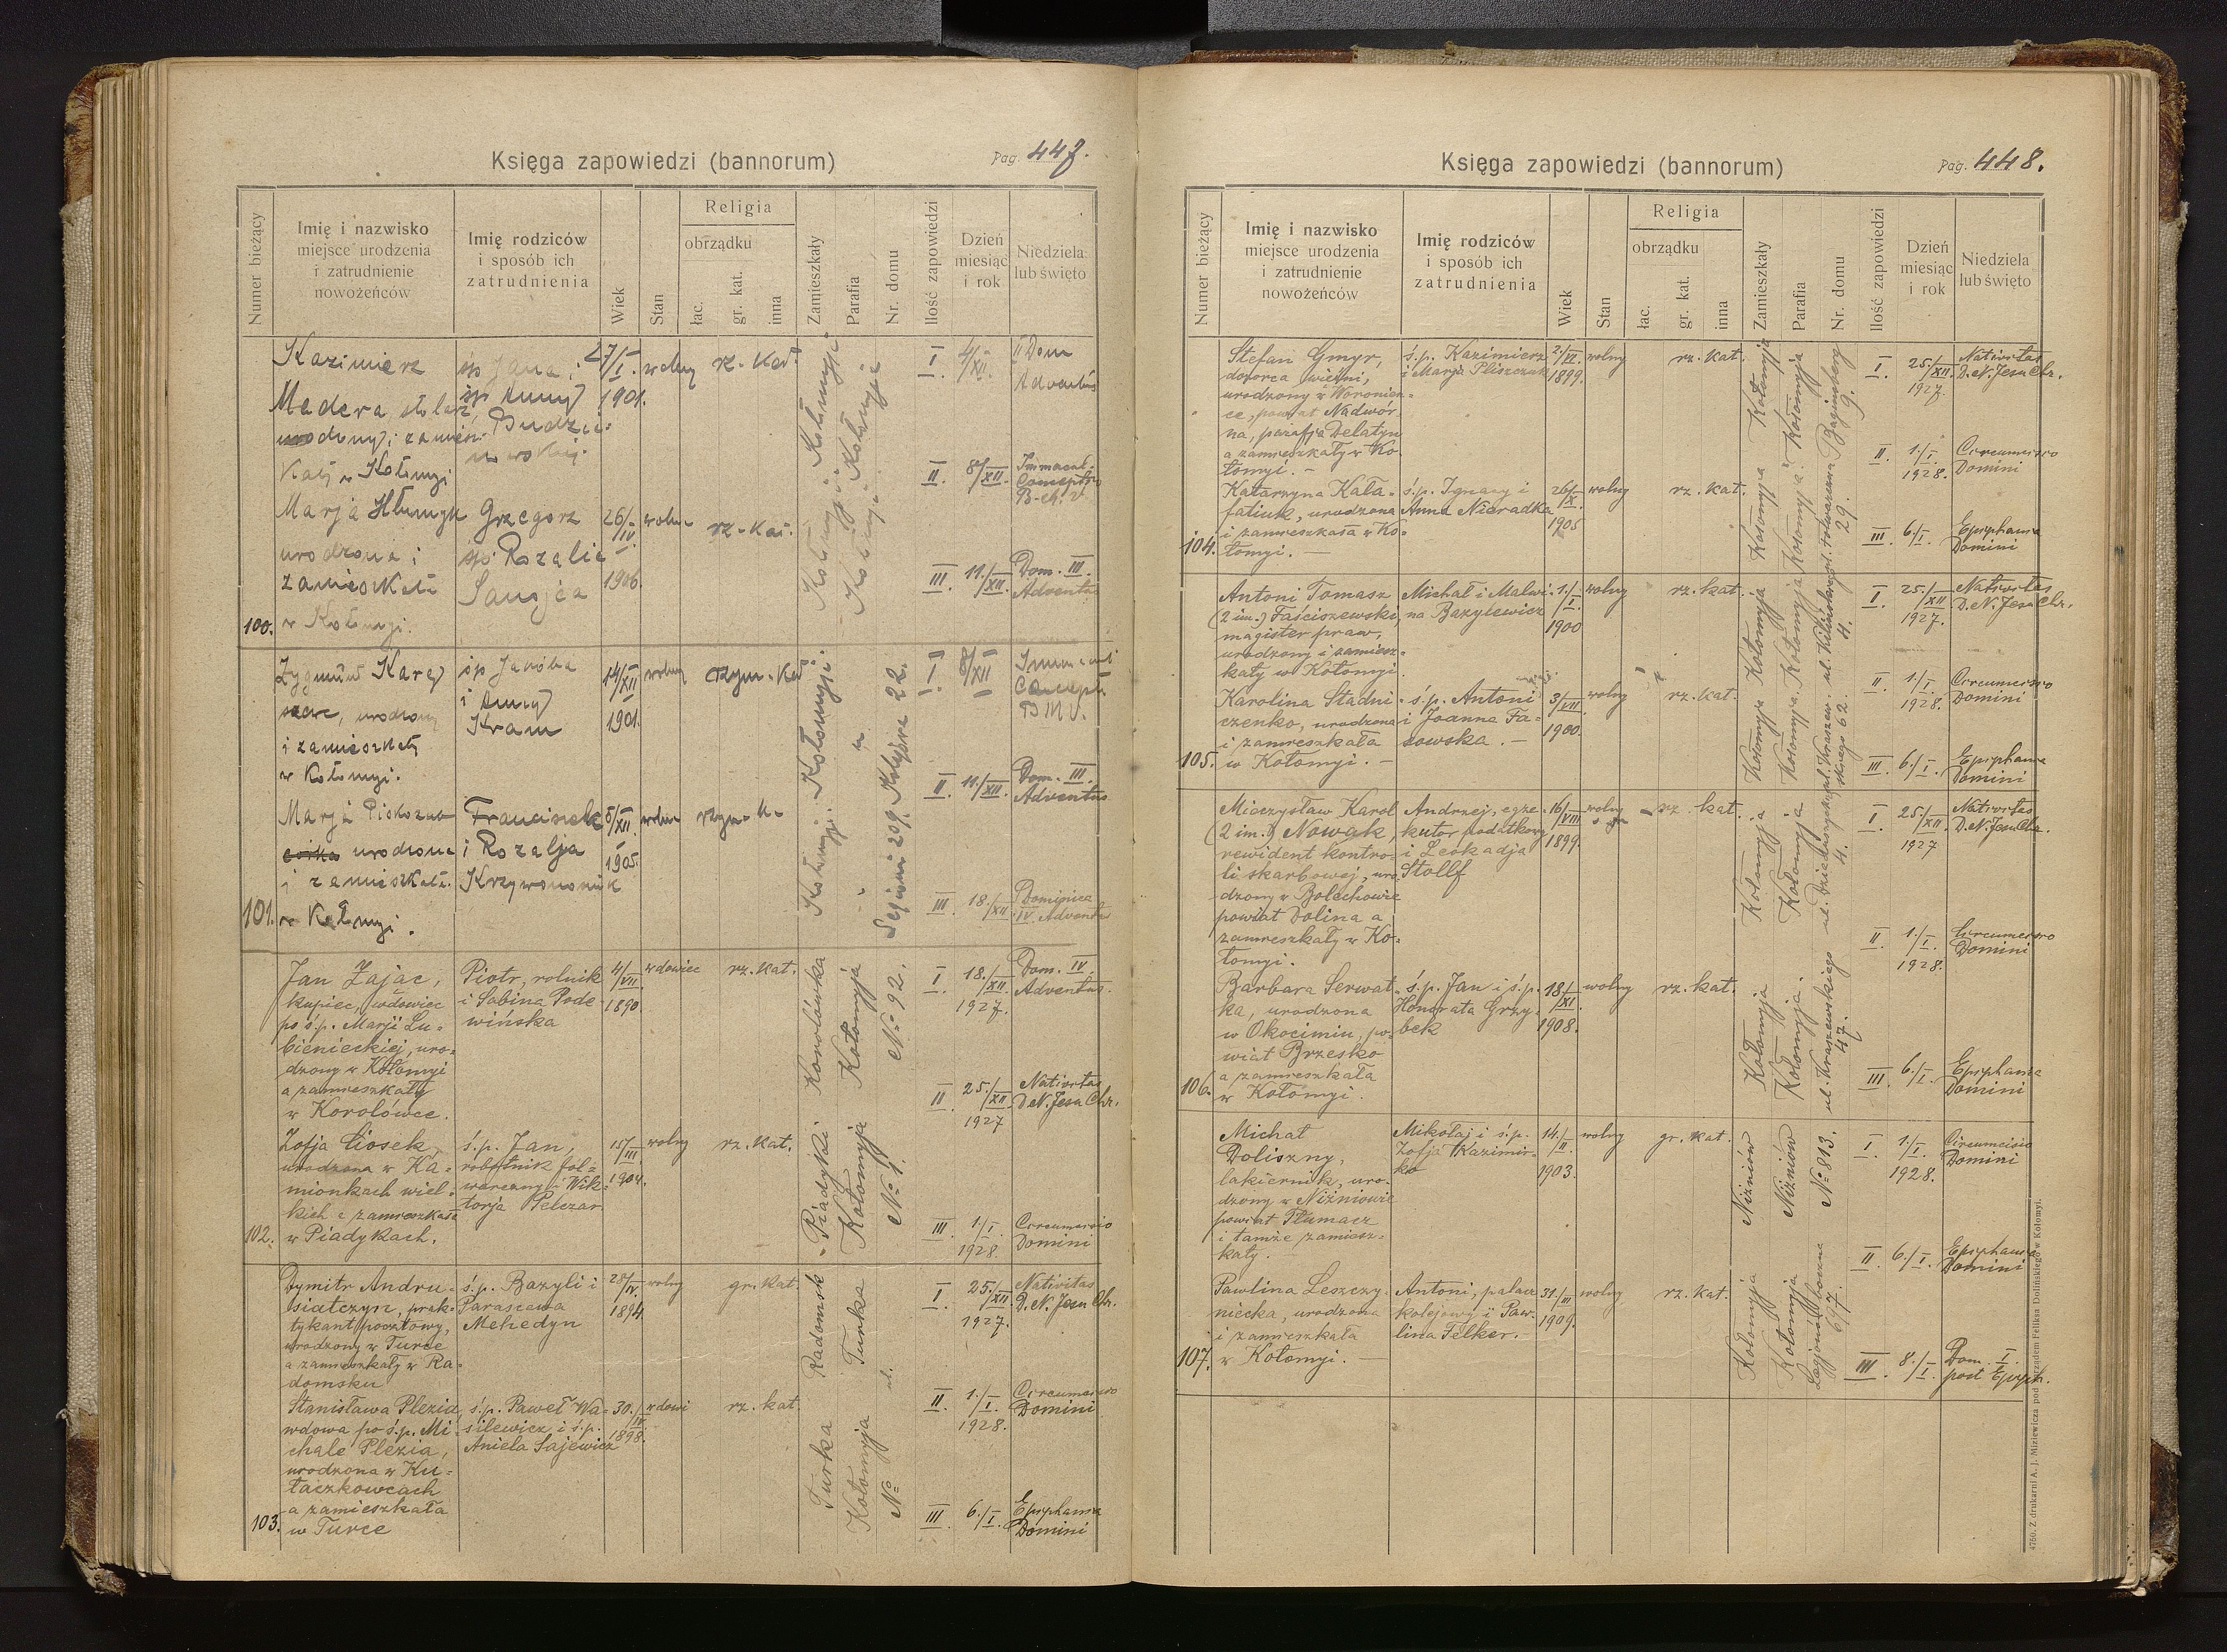 Księga zapowiedzi (bannorum)
Pag. 447.
Numer bieżący
Imię i nazwisko
miejsce urodzenia
i zatrudnienie
nowożeńców
Imię rodziców
i sposób ich
zatrudnienia
Wiek
Stan
Religia
obrządku
łac.
gr. kat.
inna
Zamieszkały
Parafia
Nr. domu
Ilość zapowiedzi
Dzień
miesiąc
i rok
Niedziela
lub święto
100.
Kazimierz
Madera, stolarz,
urodzony i zamiesz-
kały w Kołomyi
śp Jana i
śp Anny
27/I.
1901.
wolny
rz. Kat
Marja
urodzona i
zamieszkała
w Kołomyi.
Grzegorz
śp. Rozalia
26/IV.
1906
wolna
rz. Kat.
Kołomyja
Kołomyja
I. 4/XII. II Dom
Adventus
II. 8/XII. Immacul.
Conceptio
B. M. V.
III. 11./XII. Dom. III.
Adventus
101.
Zygmunt
urodzony
i zamieszkały
w Kołomyi.
śp Jakóba
i Anny
Kram
14/XII
1901.
wolny
rzym. Kat
Marja
urodzona
i zamieszkała
w Kołomyi.
Franciszek
i Rozalja
8/XII.
1905.
wolna
rzym. K.
Kołomyja
22.
209.
I. 8/XII
Concept.
B M V.
II. 11./XII. Dom. III.
Adventus
III. 18./XII. Dominica
IV. Adventus
102.
Jan Zając,
kupiec, wdowiec
po ś.p. Marji Lu-
bienieckiej, uro-
dzony w Kołomyi
a zamieszkały
w Korolówce.
Piotr, rolnik
i Sabina Pode-
wińska
4/VII.
1890.
wdowiec
rz. kat.
Zofja Ciosek,
urodzona w Ka-
mionkach wiel-
kich a zamieszkała
w Piadykach.
ś.p. Jan,
robotnik fol-
warczny i Wik-
torja Pelczar
15/III.
1904.
wolny
rz. kat.
Korolówka
Kołomyja
№ 92.
Piadyki
Kołomyja
№ 1.
I. 18./XII. 1927. Dom. IV.
Adventus.
II. 25./XII 1927 Nativitas
D. N. Jesu Chr.
III. 1./I. 1928. Circumcisio
Domini
103.
Dymitr Andru-
siatczyn, prak-
tykant pocztowy,
urodzony w Turce
a zamieszkały w Ra-
domsku
ś.p. Bazyli i
Parascewa
Mehedyn
28/IV.
1894
wolny
gr. kat
Stanisława Plezia
wdowa po ś.p. Mi-
chale Plezia,
urodzona w Ku-
łaczkowcach
a zamieszkała
w Turce
ś.p. Paweł Wa-
silewicz i ś.p.
Aniela Sajewicz
30./IV.
1898.
wdowi
rz. kat
Radomsk
Turka
ul.
Turka
Kołomyja
№
I. 25./XII 1927. Nativitas
D. N. Jesu Chr.
II. 1./I. 1928. Circumcisio
Domini
III. 6./I. Epiphania
Domini
Księga zapowiedzi (bannorum)
Pag. 448.
Numer bieżący
Imię i nazwisko
miejsce urodzenia
i zatrudnienie
nowożeńców
Imię rodziców
i sposób ich
zatrudnienia
Wiek
Stan
Religia
obrządku
łac.
gr. kat.
inna
Zamieszkały
Parafia
Nr. domu
Ilość zapowiedzi
Dzień
miesiąc
i rok
Niedziela
lub święto
104.
Stefan Gmyr,
dozorca
urodzony w Woronien-
ce, powiat Nadwór-
na, parafja Delatyn
a zamieszkały w Ko-
łomyi. -
ś.p. Kazimierz
i Marja Pliszczuk
1899.
wolny
rz. kat.
Katarzyna Kała-
fatiuk, urodzona
i zamieszkała w Ko-
łomyi. -
ś.p. Ignacy i
Anna Nieradka
26/X.
1905
wolny
rz. kat.
Kołomyja
Kołomyja
9.
Kołomyja
Kołomyja
29.
I. 25./XII. 1927. Nativitas
D. N. Jesu Chr.
II. 1./I. 1928. Circumcisio
Domini
III. 6./I. Epiphania
Domini
105.
Antoni Tomasz
(2 im.) Faściszewski,
magister praw,
urodzony i zamiesz-
kały w Kołomyi.
Michał i Malwi-
na Bazylewicz
1./I.
1900
wolny
rz. kat.
Karolina Stadni-
czenko, urodzona
i zamieszkała
w Kołomyi. -
ś.p. Antoni
i Joanna Fa-
sowska. -
3/VII
1900.
wolny
rz. kat.
Kołomyja
Kołomyja
ul. Kilińskiego
4.
Kołomyja
Kołomyja
ul. Kraszew-
skiego 62.
I. 25./XII 1927. Nativitas
D. N. Jesu Chr.
II. 1./I. 1928. Circumcisio
Domini
III. 6./I. Epiphania
Domini
106.
Mieczysław Karol
(2 im.) Nowak,
rewident kontro-
li skarbowej, uro-
dzony w Bolechowie
powiat Dolina a
zamieszkały w Ko-
łomyi.
Andrzej, egze-
kutor podatkowy
i Leokadja
Stollf
16/VIII
1899.
wolny
rz. kat.
Barbara Serwat-
ka, urodzona
w Okocimiu, po-
wiat Brzesko
a zamieszkała
w Kołomyi.
ś.p. Jan i ś.p.
Honorata Grzy-
bek
18/XI
1908.
wolny
rz. kat.
Kołomyja
Kołomyja
4.
Kołomyja
Kołomyja.
ul. Kraszewskiego
47.
I. 25./XII 1927 Nativitas
D. N. Jesu Chr.
II. 1./I. 1928. Circumcisio
Domini
III. 6./I. Epiphania
Domini
107.
Michał
Doliszny,
lakiernik, uro-
dzony w Niżniowie
powiat Tłumacz
i tamże zamiesz-
kały.
Mikołaj i ś.p.
Zofja Kazimir-
ko
14./II.
1903.
wolny
gr. kat.
Pawlina Leszczy-
niecka, urodzona
i zamieszkała
w Kołomyi. -
Antoni, palacz
kolejowy i Paw-
lina Felker. -
31./III
1909.
wolny
rz. kat.
Niżniów
Niżniów
№ 813.
Kołomyja
Kołomyja
Legjonów
67.
I. 1./I. 1928. Circumcisio
Domini
II. 6./I. Epiphania
Domini
III. 8./I. Dom. I.
post Epiph.
4750. Z drukarni A. J. Miziewicza pod zarządem Feliksa Dolińskiego w Kołomyi.